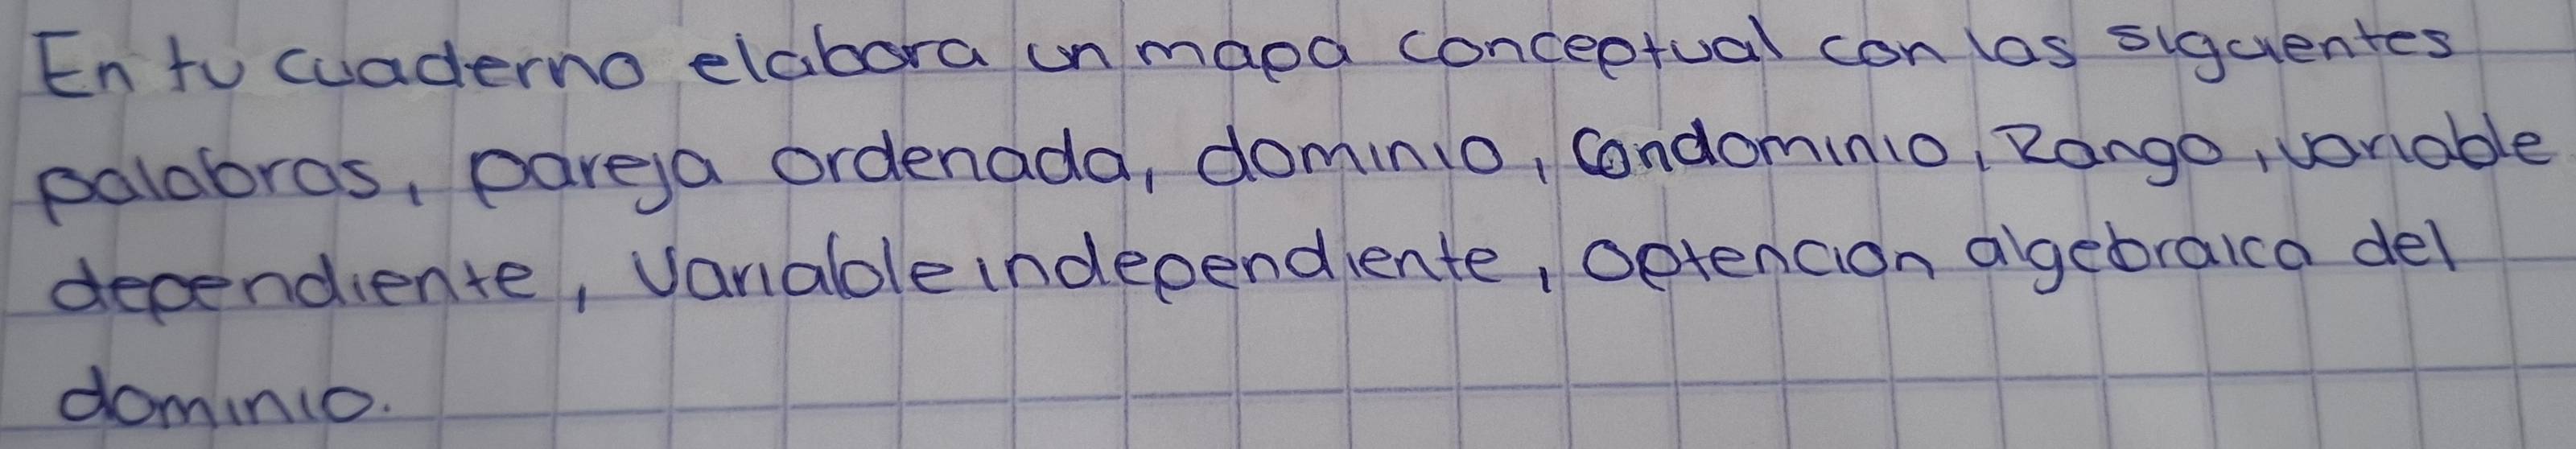 En tu cuaderno elabora un mapa conceptual con las siguientes
palabras, pareja ordenada, dominio, Condominio, Rango, variable
dependiente, Variable independiente, optencion algebraica del
dominio.